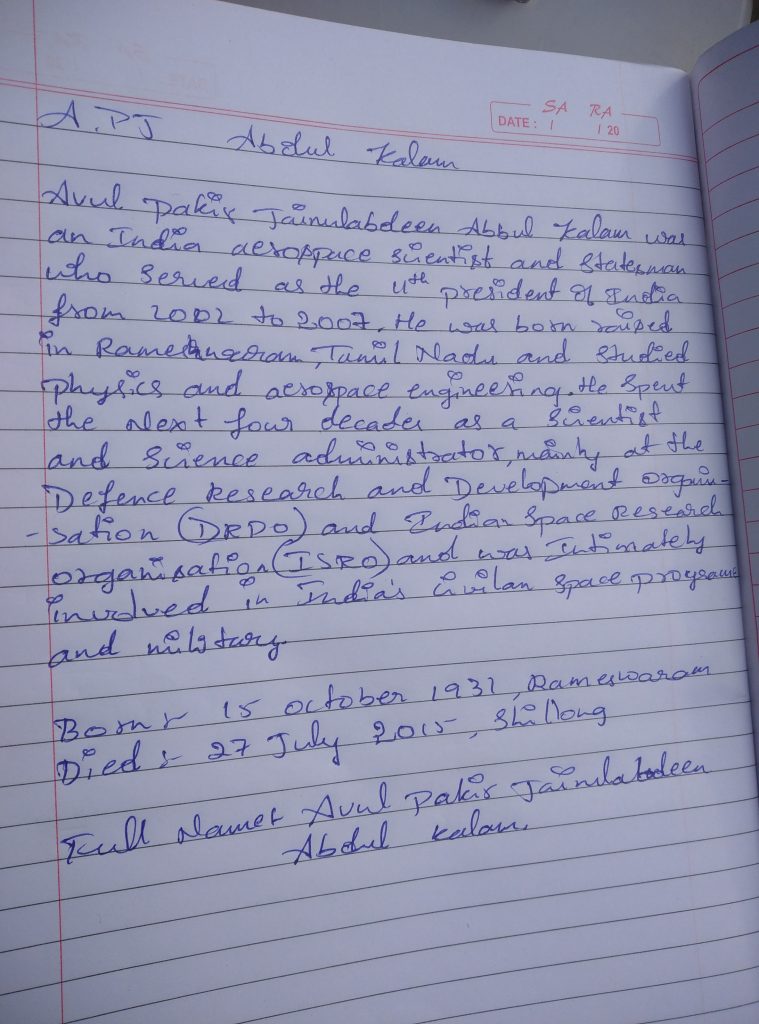 SA RA
DATE: / / 20
A.PJ Abdul Kalam
Avul Pakir Jainulabdeen Abbul Kalam was
an India aerospace scientist and Statesman
who Served as the 11th president of India
from 2002 to 2007. He was born raised
in Rameshwaram, Tamil Nadu and Studied
physics and aerospace engineering. He Spent
the Next four decades as a Scientist
and Science administrator, mainly at the
Defence Research and Development organi-
-sation (DRDO) and Indian Space Research
organisation (ISRO) and was Intimately
involved in India's Civilan Space programe
and military.
Born :- 15 october 1931, Rameswaram
Died :- 27 July 2015, Shillong
Full Name :- Avul Pakir Jainulabdeen
Abdul Kalam.